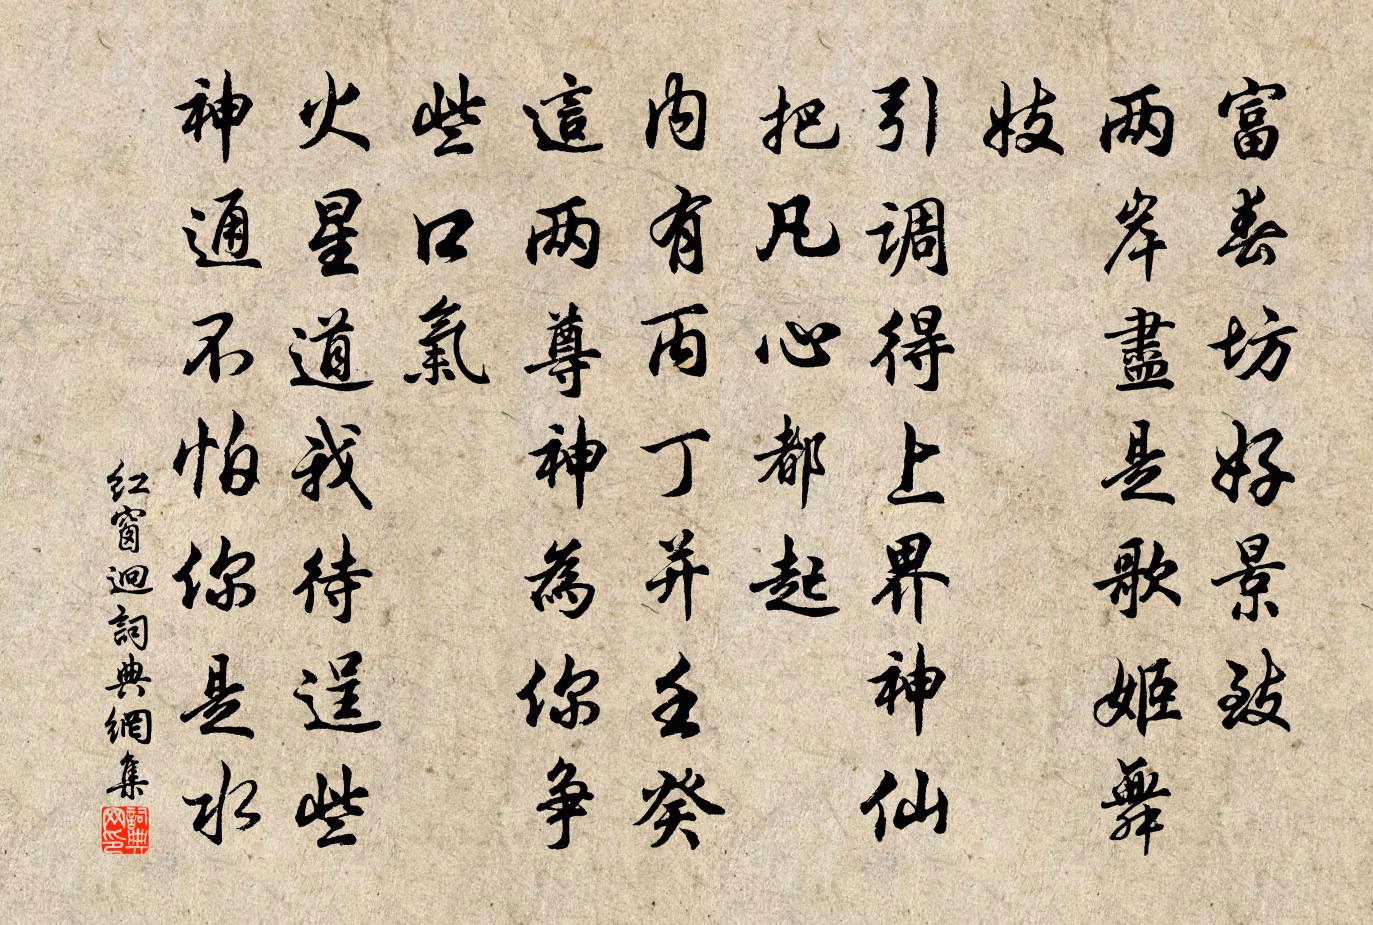 富春坊好景致
两岸盡是歌姬舞
妓
引調得上界神仙
把凡心都起
内有丙丁并壬癸
這两尊神為你争
些口氣
火星道我待逞些
神通不怕你是水
红窗迥詞典網集
詞典网印